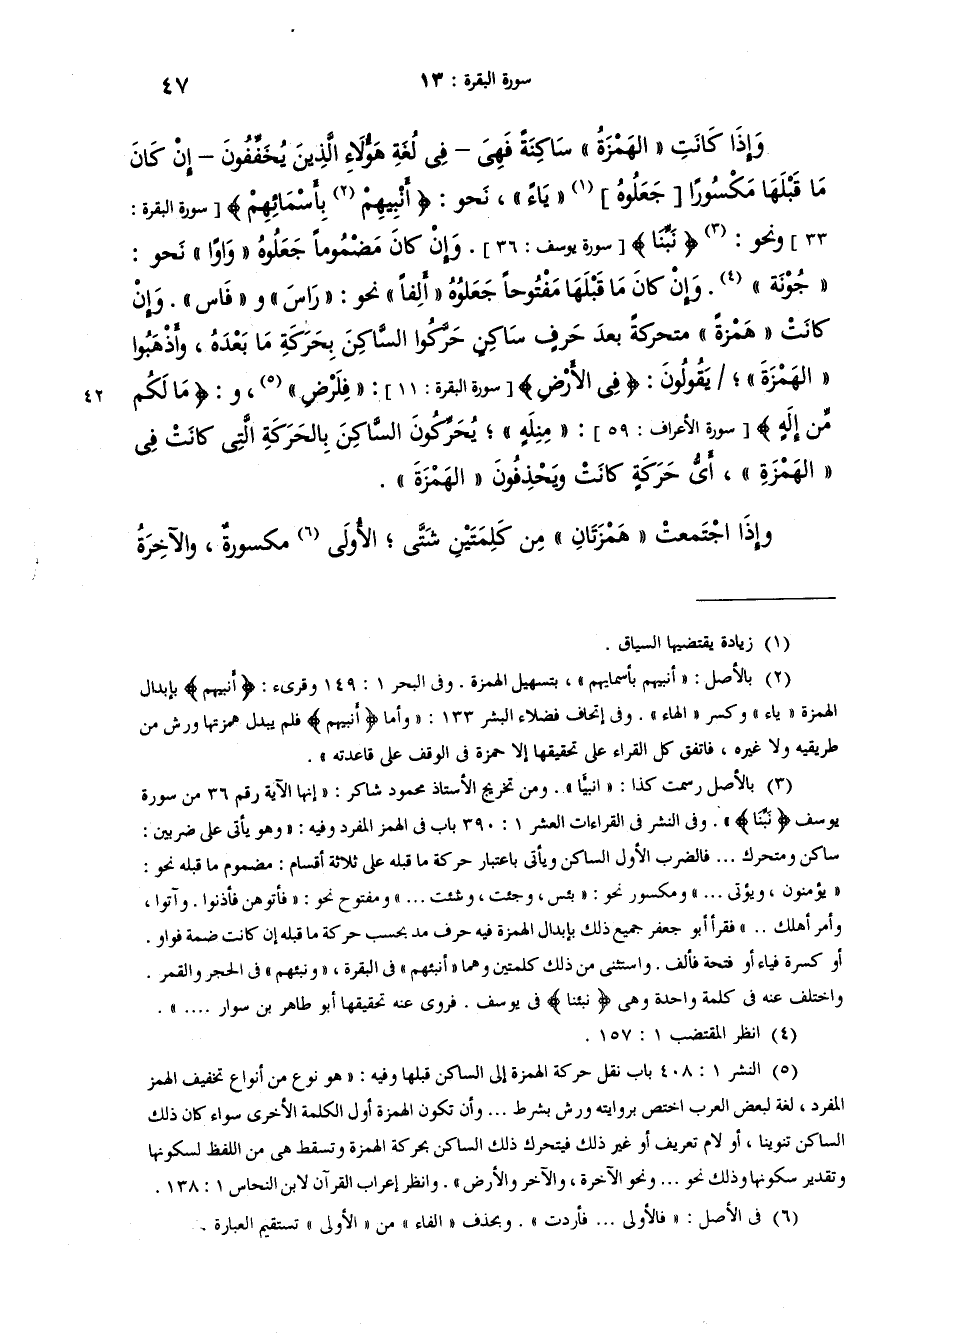 سورة البقرة : ١٣
٤٧
وَإِذَا كَانَتِ « الهَمْزَةُ » سَاكِنَةً فَهِىَ – فِى لُغَةِ هَؤُلَاءِ الَّذِينَ يُخَفِّفُونَ – إِنْ كَانَ
مَا قَبْلَهَا مَكْسُورًا [ جَعَلُوهُ ] (١) « يَاءً » ، نَحو : ﴿ أَنْبِيهِمْ (٢) بِأَسْمَائِهِمْ ﴾ [ سورة البقرة :
٣٣ ] ونحو : (٣) ﴿ نَبِّنَا ﴾ [ سورة يوسف : ٣٦ ] . وَإِنْ كانَ مَضْمُوماً جَعَلُوهُ « وَاوًا » نَحو :
« جُوْنَة » (٤) . وَإِنْ كانَ مَا قَبْلَهَا مَفْتُوحاً جَعَلُوهُ « أَلِفاً » نحو : « رَاسَ » و « فَاس » . وَإِنْ
كانَتْ « هَمْزَةً » متحركةً بعدَ حَرفٍ سَاكِنٍ حَرَّكُوا السَّاكِنَ بِحَرَكَةِ مَا بَعْدَهُ ، وأَذْهَبُوا
« الهَمْزَةَ » ؛ / يَقُولُونَ : ﴿ فِى الأَرْضِ ﴾ [ سورة البقرة : ١١ ] : « فِلَرْضِ » (٥) ، و : ﴿ مَا لَكُم
٤٢
مِّن إِلَهٍ ﴾ [ سورة الأعراف : ٥٩ ] : « مِنِلَهٍ » ؛ يُحَرِّكُونَ السَّاكِنَ بِالحَرَكَةِ الَّتِى كانَتْ فِى
« الهَمْزَةِ » ، أَىُّ حَرَكَةٍ كانَتْ ويَحْذِفُونَ « الهَمْزَةَ » .
وإِذَا اجْتَمعتْ « هَمْزَتَانِ » مِن كَلِمَتَيْنِ شَتَّى ؛ الأُولَى (٦) مكسورةٌ ، والآخِرَةُ
(١) زيادة يقتضيها السياق .
(٢) بالأصل : « أنبيهم بأسمايهم » ، بتسهيل الهمزة . وفى البحر ١ : ١٤٩ وقرىء : ﴿ أَنبيهم ﴾ بإبدال
الهمزة « ياء » وكسر « الهاء » . وفى إتحاف فضلاء البشر ١٣٣ : « وأما ﴿ أَنبيهم ﴾ فلم يبدل همزتها ورش من
طريقيه ولا غيره ، فاتفق كل القراء على تحقيقها إلا حمزة فى الوقف على قاعدته » .
(٣) بالأصل رسمت كذا : « انبيَّا » . ومن تخريج الأستاذ محمود شاكر : « إنها الآية رقم ٣٦ من سورة
يوسف ﴿ نَبِّنا ﴾ » . وفى النشر فى القراءات العشر ١ : ٣٩٠ باب فى الهمز المفرد وفيه : « وهو يأتى على ضربين :
ساكن ومتحرك ... فالضرب الأول الساكن ويأتى باعتبار حركة ما قبله على ثلاثة أقسام : مضموم ما قبله نحو :
« يؤمنون ، ويؤتى ... » ومكسور نحو : « بئس ، وجئت ، وشئت ... » ومفتوح نحو : « فأتوهن فأذنوا . وآتوا ،
وأمر أهلك .. » فقرأ أبو جعفر جميع ذلك بإبدال الهمزة فيه حرف مد بحسب حركة ما قبله إن كانت ضمة فواو .
أو كسرة فياء أو فتحة فألف . واستثنى من ذلك كلمتين وهما « أنبئهم » فى البقرة ، « ونبئهم » فى الحجر والقمر .
واختلف عنه فى كلمة واحدة وهى ﴿ نبئنا ﴾ فى يوسف . فروى عنه تحقيقها أبو طاهر بن سوار .... » .
(٤) انظر المقتضب ١ : ١٥٧ .
(٥) النشر ١ : ٤٠٨ باب نقل حركة الهمزة إلى الساكن قبلها وفيه : « هو نوع من أنواع تخفيف الهمز
المفرد ، لغة لبعض العرب اختص بروايته ورش بشرط ... وأن تكون الهمزة أول الكلمة الأخرى سواء كان ذلك
الساكن تنوينا ، أو لام تعريف أو غير ذلك فيتحرك ذلك الساكن بحركة الهمزة وتسقط هى من اللفظ لسكونها
وتقدير سكونها وذلك نحو ... ونحو الآخرة ، والآخر والأرض » . وانظر إعراب القرآن لابن النحاس ١ : ١٣٨ .
(٦) فى الأصل : « فالأولى ... فأردت » . وبحذف « الفاء » من « الأولى » تستقيم العبارة .